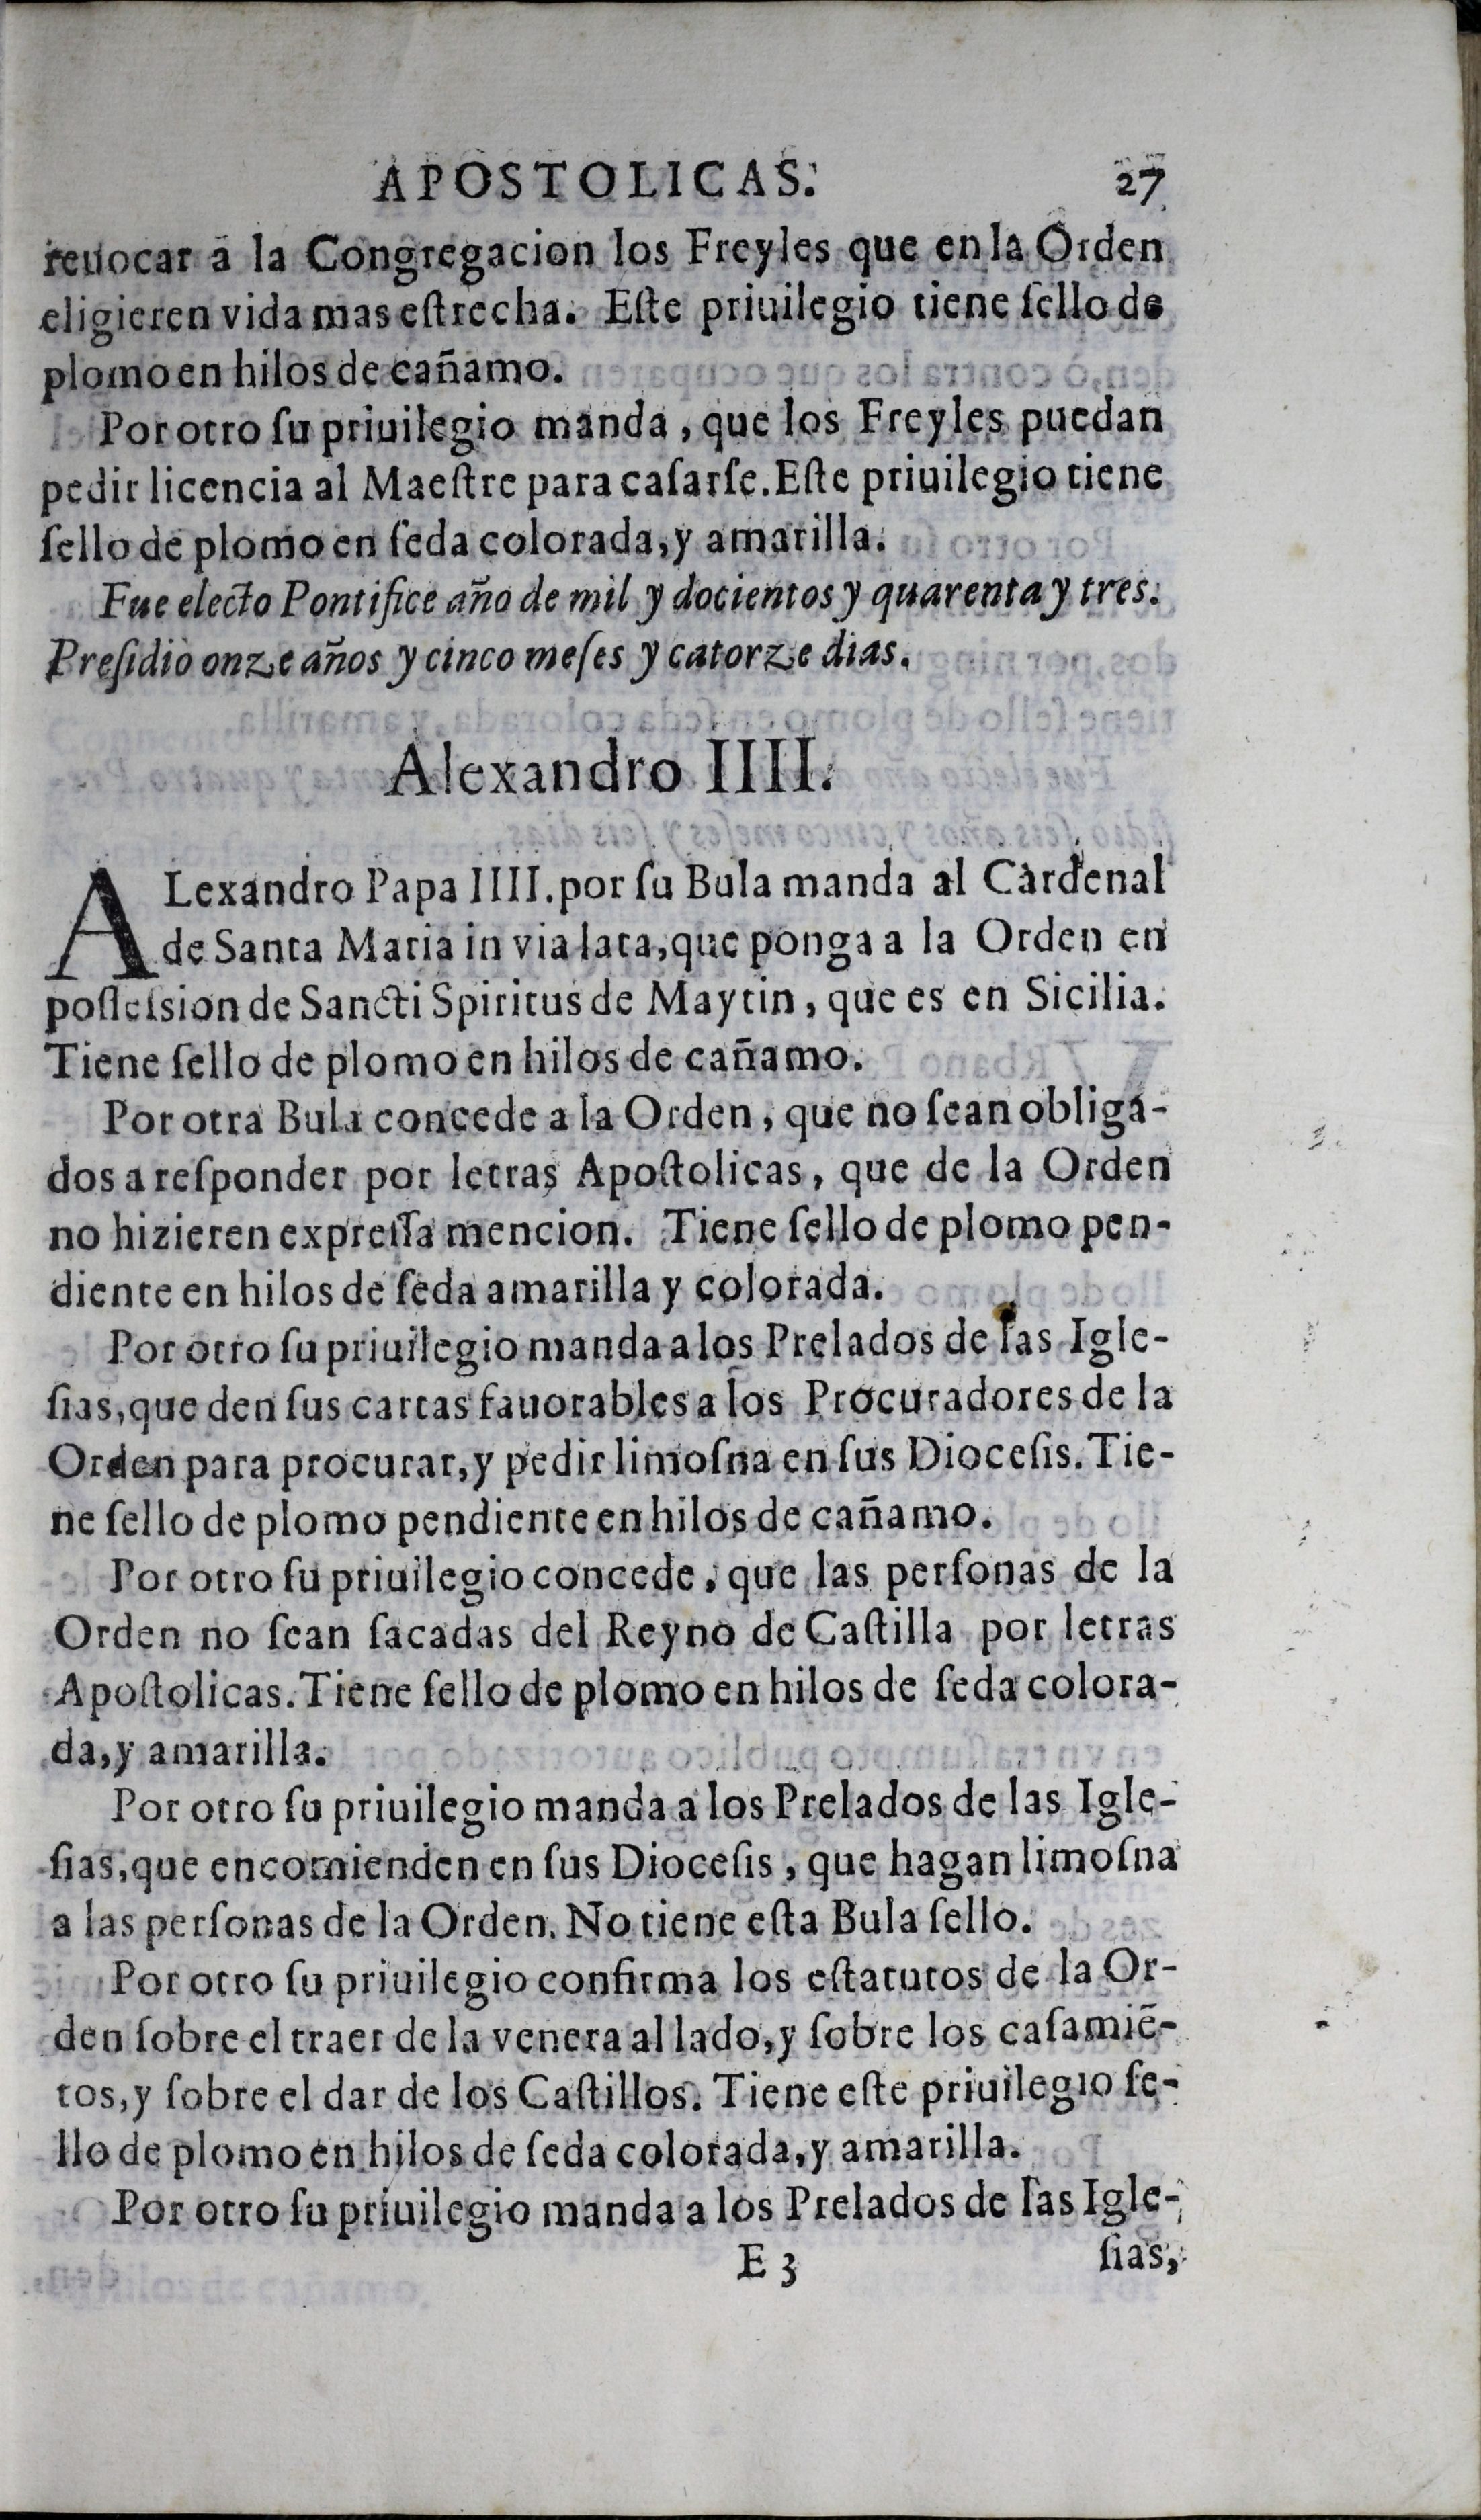 APOSTOLICAS. 27
reuocar a la Congregacion los Freyles que en la Orden
eligieren vida mas eſtrecha. Eſte priuilegio tiene ſello de
plomo en hilos de cañamo.
Por otro ſu priuilegio manda, que los Freyles puedan
pedir licencia al Maeſtre para caſarſe. Eſte priuilegio tiene
ſello de plomo en ſeda colorada, y amarilla.
Fue electo Pontifice año de mil y docientos y quarenta y tres.
Preſidiò onze años y cinco meſes y catorze dias.
Alexandro IIII.
ALexandro Papa IIII. por ſu Bula manda al Cardenal
de Santa Maria in via lata, que ponga a la Orden en
poſſeſsion de Sancti Spiritus de Maytin, que es en Sicilia.
Tiene ſello de plomo en hilos de cañamo.
Por otra Bula concede a la Orden, que no ſean obliga-
dos a reſponder por letras Apoſtolicas, que de la Orden
no hizieren expreſſa mencion. Tiene ſello de plomo pen-
diente en hilos de ſeda amarilla y colorada.
Por otro ſu priuilegio manda a los Prelados de las Igle-
ſias, que den ſus cartas fauorables a los Procuradores de la
Orden para procurar, y pedir limoſna en ſus Dioceſis. Tie-
ne ſello de plomo pendiente en hilos de cañamo.
Por otro ſu priuilegio concede, que las perſonas de la
Orden no ſean ſacadas del Reyno de Caſtilla por letras
Apoſtolicas. Tiene ſello de plomo en hilos de ſeda colora-
da, y amarilla.
Por otro ſu priuilegio manda a los Prelados de las Igle-
ſias, que encomienden en ſus Dioceſis, que hagan limoſna
a las perſonas de la Orden. No tiene eſta Bula ſello.
Por otro ſu priuilegio confirma los eſtatutos de la Or-
den ſobre el traer de la venera al lado, y ſobre los caſamiẽ-
tos, y ſobre el dar de los Caſtillos. Tiene eſte priuilegio ſe-
llo de plomo en hilos de ſeda colorada, y amarilla.
Por otro ſu priuilegio manda a los Prelados de las Igle-
E 3 ſias,